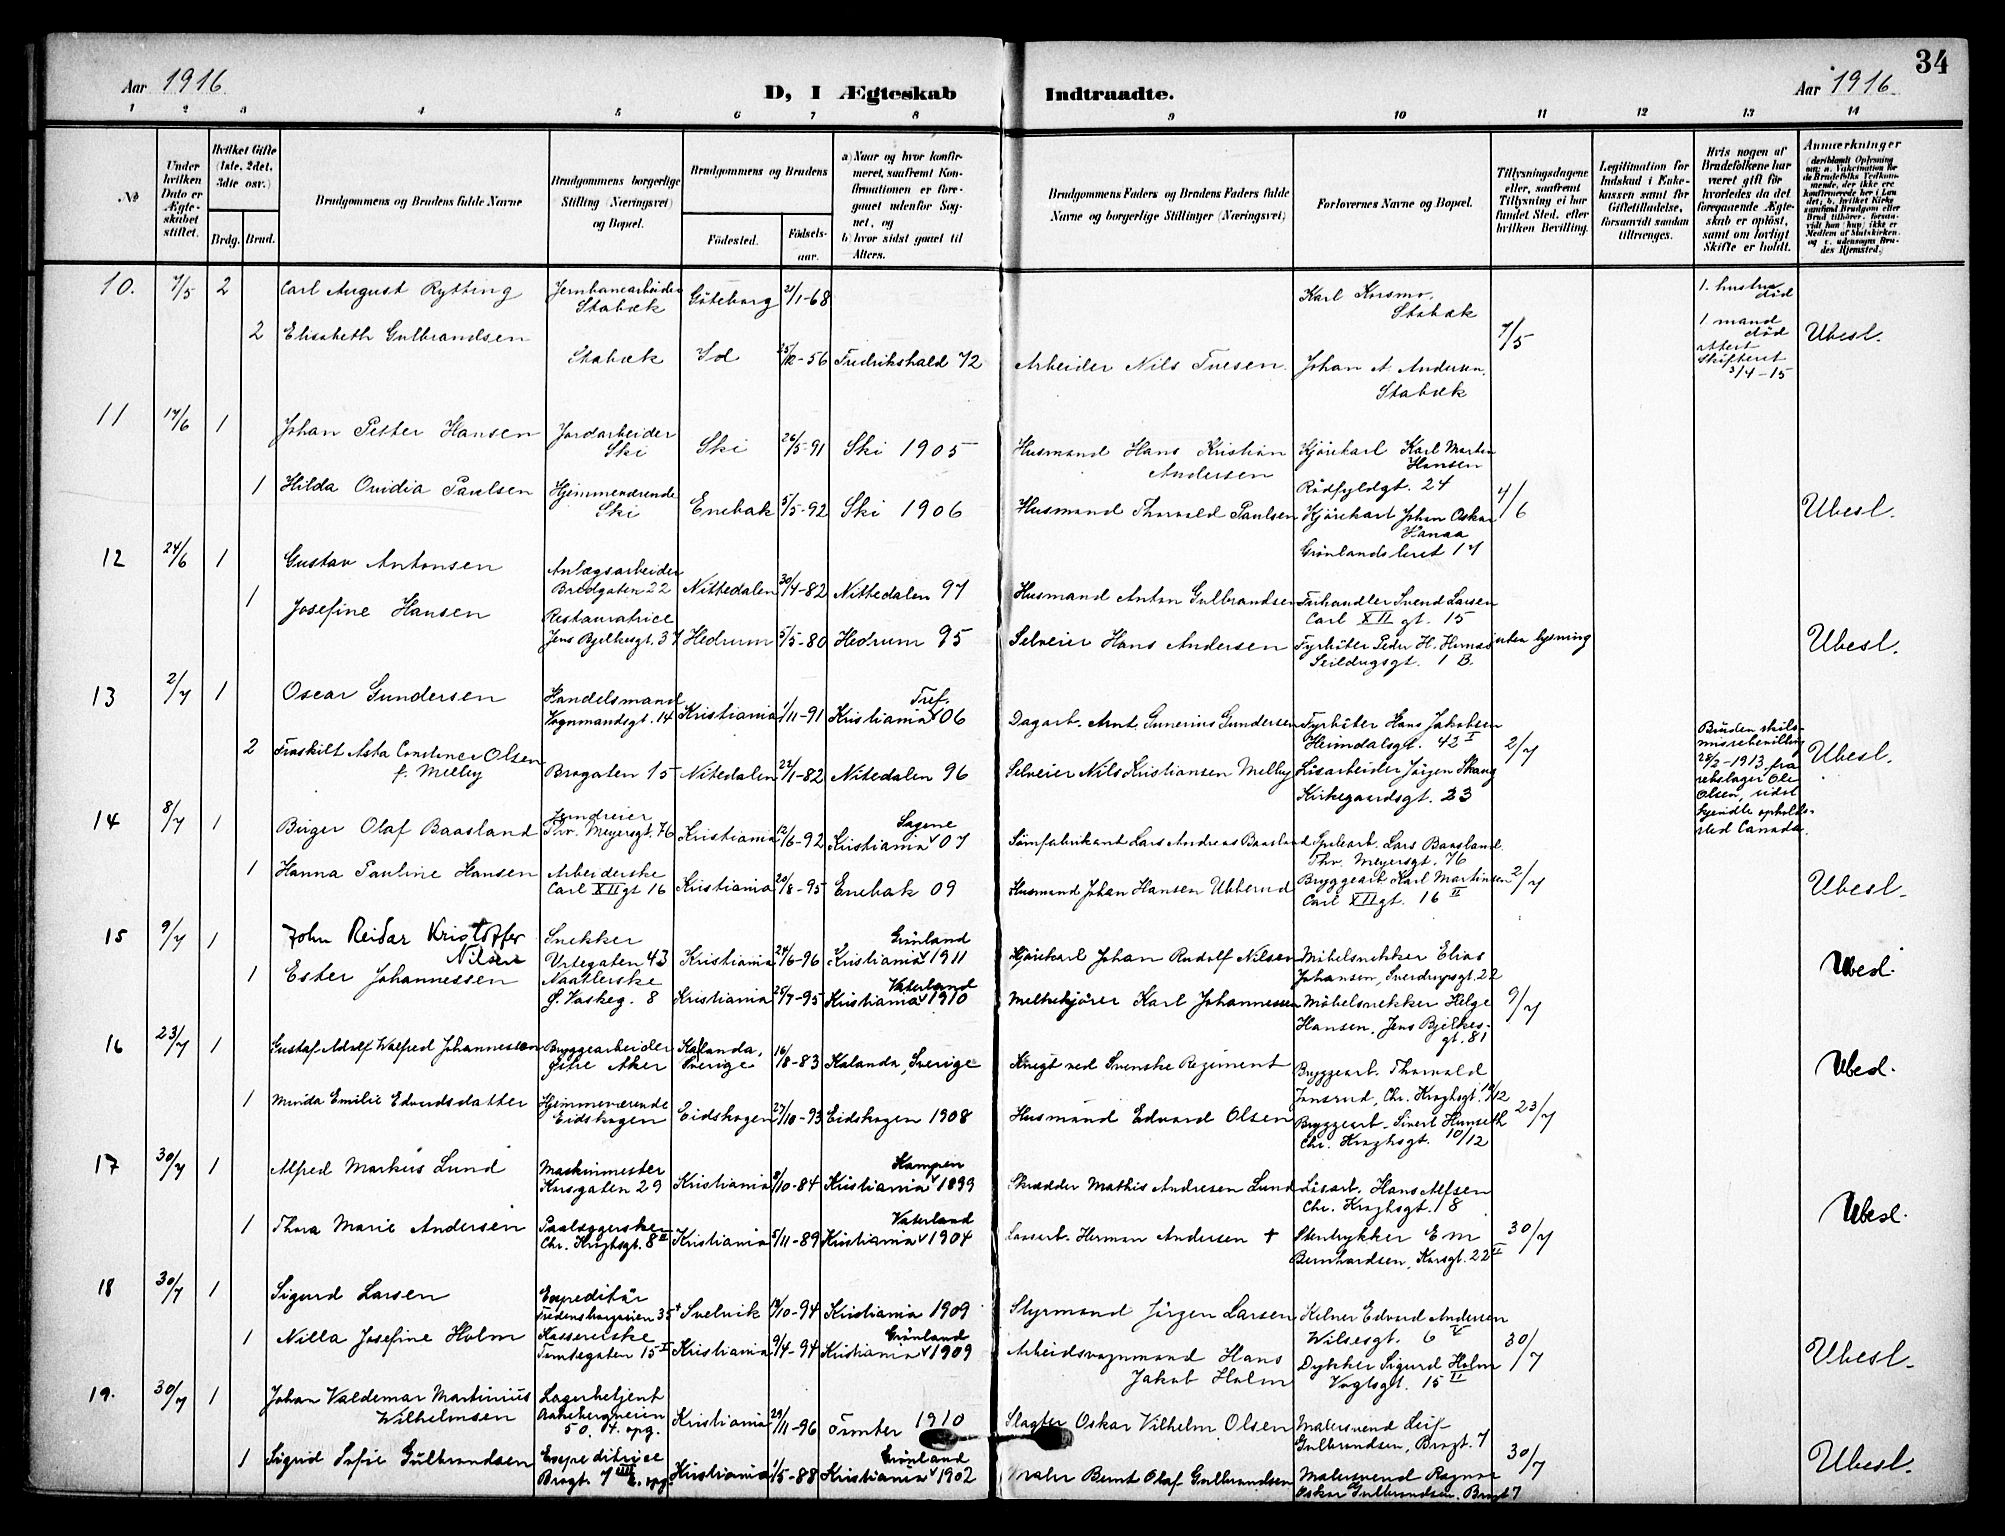 34
Aar 1916
D, I Ægteskab Indtraadte.
Aar 1916
1 2 3 4 5 6 7 8 9 10 11 12 13 14
No
Under hvilken Dato er Ægteskabet stiftet.
Hvilket Gifte (1ste, 2det, 3die osv.)
Brdg. Brud.
Brudgommens og Brudens fulde Navne
Brudgommens borgerlige Stilling (Næringsvei) og Bopæl.
Brudgommens og Brudens
Fødested. Fødselsaar.
a) Naar og hvor konfirmeret, saafremt Konfirmationen er foregaaet udenfor Sognet, og
b) hvor sidst gaaet til Alters.
Brudgommens Faders og Brudens Faders fulde Navne og borgerlige Stillinger (Næringsvei)
Forlovernes Navne og Bopæl.
Tillysningsdagene eller, saafremt Tillysning ei har fundet Sted, efter hvilken Bevilling.
Legitimation for Indskud i Enkekassen samt for Giftetilladelse, forsaavidt saadan tiltrænges.
Hvis nogen af Brudefolkene har været gift før hvorledes da det foregaaende Ægteskab er opløst, samt om lovligt Skifte er holdt.
Anmærkninger
10. 7/5 2 Carl August Rytting Jernbanearbeider Stabæk Göteborg 21/1-68 Karl Korsmo, Stabæk 1. hustru død
2 Elisabeth Gulbrandsen Stabæk Id 25/12-56 Fredrikshald 72 Arbeider Nils Tuesen. Johan A. Andersen, Stabæk 7/5 1 mand død attest skifteret 3/4-15 Ubesl.
11 17/6 1 Johan Petter Hansen Jordarbeider Ski Ski 26/5-91 Ski 1905 Husmand Hans Kristian Andersen Kjørekarl Karl Martin Hansen Rødfyldgt. 24
1 Hilda Ovidia Paulsen Hjemmeværende Ski Enebak 5/5-92 Ski 1906 Husmand Thorvald Paulsen Kjørekarl Johan Oskar Hanaa Grønlandsleret 17 4/6 Ubesl.
12 24/6 1 Gustav Antonsen Anlægsarbeider Brogaten 22 Nittedalen 30/4-82 Nittedalen 97 Husmand Anton Gulbrandsen Svend Larsen Carl XII gt. 15
1 Josefine Hansen Restauratrice Jens Bjelkesgt. 37 Hedrum 5/5-80 Hedrum 95 Selveier Hans Andersen Fyrbøter Peder H. Hernæs Seildugsgt. 1 B. uten lysning Ubesl.
13 2/7 1 Oscar Gundersen Handelsmand Vognmandsgt. 14 Kristiania 1/11-91 Tref. Kristiania 06 Dagarb. Arnt Sunerius Gundersen Fyrbøter Hans Jakobsen Heimdalsgt. 42 I
2 Fraskilt Asta Constance Olsen f. Melby Brogaten 15 Nitedalen 22/1-82 Nitedalen 96 Selveier Nils Kristiansen Melby Løsarbeider Jørgen Skaug Kirkegaardsgt. 23 2/7 Bruden skilsmissebevilling 28/2-1913 fra rebslager Ole Olsen, sidst kjendte opholdssted Canada. Ubesl.
14 8/7 1 Birger Olaf Baasland Jerndreier Thv. Meyersgt. 76 Kristiania 12/6-92 Sagene Kristiania 07 Sømfabrikant Lars Andreas Baasland Lars Baasland. Thv. Meyersgt. 76
1 Hanna Pauline Hansen Arbeiderske Carl XII gt 16 Kristiania 20/8-95 Enebak 09 Husmand Johan Hansen Ubberud Bryggearb. Karl Martinsen Carl XII gt. 16 II 2/7 Ubesl.
15 9/7 1 John Reidar Kristoffer Nilsen Snekker Urtegaten 43 Kristiania 24/6-96 Grønland Kristiania 1911 Kjørekarl Johan Rudolf Nilsen Møbelsnekker Elias Johansen, Sverdrupsgt. 22
1 Ester Johannessen Naatlerske Ø. Vaskeg. 8 Kristiania 25/7-95 Vaterland Kristiania 1910 Melkekjører Karl Johannessen Møbelsnekker Helge Hansen, Jens Bjelkesgt. 81 9/7 Ubesl.
16 23/7 1 Gustaf Adolf Walfred Johannesson Bryggearbeider Østre Aker Kalanda, Sverige 16/8-83 Kalanda, Sverige Knegt ved Svenske Regiment Bryggearb. Thorvald Jonsrud, Chr. Kroghsgt. 10/12
1 Minda Emilie Edvardsdatter Hjemmeværende Eidskogen Eidskogen 27/10-93 Eidskogen 1908 Husmand Edvard Olsen Bryggearb. Sivert Chr. Kroghsgt. 10/12 23/7 Ubesl.
17 30/7 1 Alfred Markus Lund Maskinmester Korsgaten 29 Kristiania 8/10-84 Kampen Kristiania 1899 Skrædder Mathis Andresen Lund Løsarb. Hans Alfsen Chr. Kroghsgt. 18
1 Thora Marie Andersen Paalæggerske Chr. Kroghsgt. 8 II Kristiania 5/11-89 Vaterland Kristiania 1904 Løsarb. Herman Andersen † Stentrykker Em Bernhardsen, Korsgt. 22 II 30/7 Ubesl.
18 30/7 1 Sigurd Larsen Expeditør Fredensborgveien 35 Svelvik /10-94 Kristiania 1909 Styrmand Jörgen Larsen Kelner Edvard Andersen Wilsesgt. 6 V
1 Nilla Josefine Holm Kassererske Tomtegaten 15 I Kristiania 9/4-94 Grønland Kristiania 1909 Arbeidsvognmand Hans Jakob Holm Dykker Sigurd Holm Vogtsgt. 15 II 30/7 Ubesl.
19. 30/7 1 Johan Valdemar Martinius Wilhelmsen Lagerbetjent Aakebergveien 50, 4. opg. Kristiania 29/11-96 Tomter 1910 Slagter Oskar Vilhelm Olsen Malersvend Leif Gulbrandsen, Brogt. 7
1 Sigrid Sofie Gulbrandsen Expeditrice Brogt. 7 III Kristiania 1/5-88 Grønland Kristiania 1902 Maler Bernt Olaf Gulbrandsen Malersvend Ragnar Oskar Gulbrandsen. Brogt 7 30/7 Ubesl.